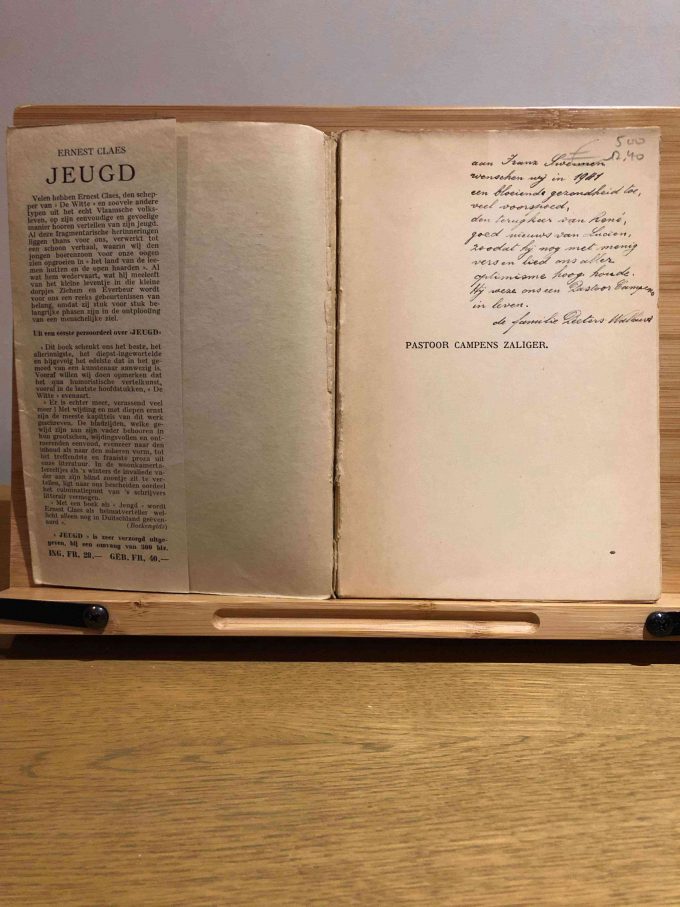 ERNEST CLAES
JEUGD
Velen hebben Ernest Claes, den schep-
per van « De Witte » en zoovele andere
typen uit het echt Vlaamsche volks-
leven, op zijn eenvoudige en gevoelige
manier hooren vertellen van zijn jeugd.
Al deze fragmentarische herinneringen
liggen thans voor ons, verwerkt tot
een schoon verhaal, waarin wij den
jongen boerenzoon voor onze oogen
zien opgroeien in « het land van de lee-
men hutten en de open haarden ». Al
wat hem wedervaart, wat hij meeleeft
van het kleine leventje in die kleine
dorpjes Zichem en Everbeur wordt
voor ons een reeks gebeurtenissen van
belang, omdat zij stuk voor stuk be-
langrijke phasen zijn in de ontplooiing
van een menschelijke ziel.
Uit een eerste persoordeel over «JEUGD»
« Dit boek schenkt ons het beste, het
allerinnigste, het diepst-ingewortelde
en bijgevolg het edelste dat in het ge-
moed van een kunstenaar aanwezig is.
Vooraf willen wij doen opmerken dat
het qua humoristische vertelkunst,
vooral in de laatste hoofdstukken, « De
Witte » evenaart.
» Er is echter meer, verrassend veel
meer ! Met wijding en met diepen ernst
zijn de meeste kapittels van dit werk
geschreven. De bladzijden, welke ge-
wijd zijn aan zijn vader behooren in
hun grootschen, wijdingsvollen en ont-
roerenden eenvoud, evenzeer naar den
inhoud als naar den soberen vorm, tot
het treffendste en fraaiste proza uit
onze literatuur. In de woonkamerta-
fereeltjes als 's winters de invalide va-
der aan zijn blind zoontje zit te ver-
tellen, ligt naar ons bescheiden oordeel
het culminatiepunt van 's schrijvers
litterair vermogen.
» Met een boek als « Jeugd » wordt
Ernest Claes als heimatverteller wel-
licht alleen nog in Duitschland geëven-
aard ».
(Boekengids)
« JEUGD » is zeer verzorgd uitge-
geven, bij een omvang van 300 blz.
ING. FR. 29,— GEB. FR. 40,—
500
12,40
aan Franz Swennen
wenschen wij in 1941
een bloeiende gezondheid toe,
veel voorspoed,
den terugkeer van René,
goed nieuws van Lucien,
zoodat hij nog met menig
vers en lied ons aller
optimisme hoog houde.
Hij weze ons een Pastoor Campens
in leven.
de familie Pieters
PASTOOR CAMPENS ZALIGER.